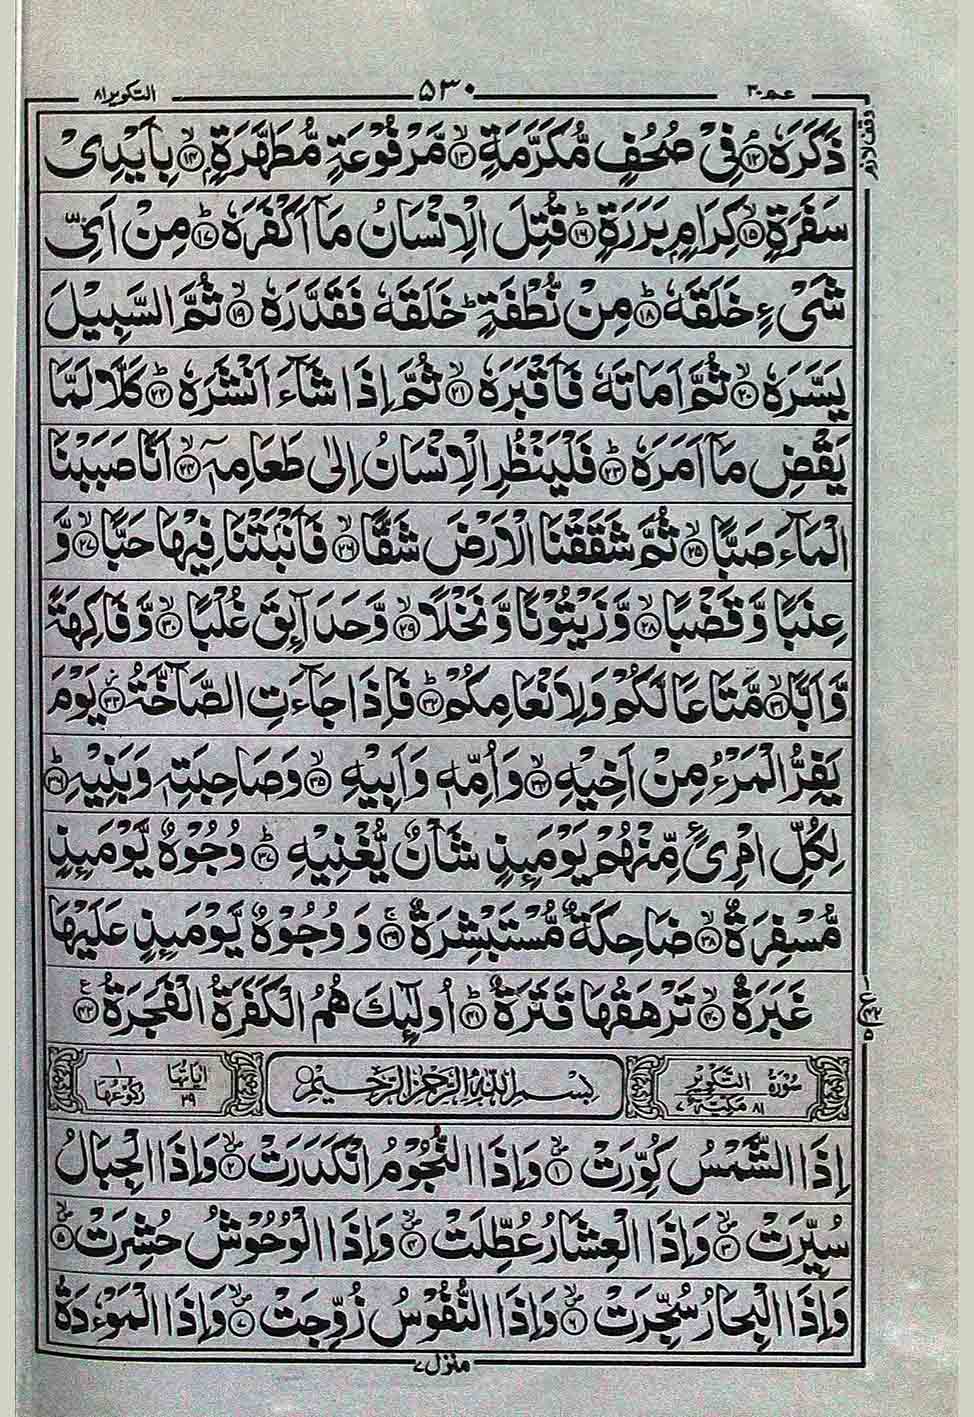 عم ٣٠ ٥٣٠ التكوير ٨١
وقف لازم
ذَكَرَهٗ ﴿١٢﴾ فِيْ صُحُفٍ مُّكَرَّمَةٍ ﴿١٣﴾ مَّرْفُوْعَةٍ مُّطَهَّرَةٍۭ ﴿١٤﴾ بِاَيْدِيْ
سَفَرَةٍ ﴿١٥﴾ كِرَامٍۭ بَرَرَةٍ ﴿١٦﴾ قُتِلَ الْاِنْسَانُ مَاۤ اَكْفَرَهٗ ﴿١٧﴾ مِنْ اَيِّ
شَيْءٍ خَلَقَهٗ ﴿١٨﴾ مِنْ نُّطْفَةٍ ؕ خَلَقَهٗ فَقَدَّرَهٗ ﴿١٩﴾ ثُمَّ السَّبِيْلَ
يَسَّرَهٗ ﴿٢٠﴾ ثُمَّ اَمَاتَهٗ فَاَقْبَرَهٗ ﴿٢١﴾ ثُمَّ اِذَا شَآءَ اَنْشَرَهٗ ﴿٢٢﴾ كَلَّا لَمَّا
يَقْضِ مَاۤ اَمَرَهٗ ﴿٢٣﴾ فَلْيَنْظُرِ الْاِنْسَانُ اِلٰى طَعَامِهٖۤ ﴿٢٤﴾ اَنَّا صَبَبْنَا
الْمَآءَ صَبًّا ﴿٢٥﴾ ثُمَّ شَقَقْنَا الْاَرْضَ شَقًّا ﴿٢٦﴾ فَاَنْۢبَتْنَا فِيْهَا حَبًّا ﴿٢٧﴾ وَّ
عِنَبًا وَّ قَضْبًا ﴿٢٨﴾ وَّ زَيْتُوْنًا وَّ نَخْلًا ﴿٢٩﴾ وَّ حَدَآىِٕقَ غُلْبًا ﴿٣٠﴾ وَّ فَاكِهَةً
وَّ اَبًّا ﴿٣١﴾ مَّتَاعًا لَّكُمْ وَ لِاَنْعَامِكُمْ ﴿٣٢﴾ فَاِذَا جَآءَتِ الصَّآخَّةُ ﴿٣٣﴾ يَوْمَ
يَفِرُّ الْمَرْءُ مِنْ اَخِيْهِ ﴿٣٤﴾ وَ اُمِّهٖ وَ اَبِيْهِ ﴿٣٥﴾ وَ صَاحِبَتِهٖ وَ بَنِيْهِ ﴿٣٦﴾
لِكُلِّ امْرِئٍ مِّنْهُمْ يَوْمَىِٕذٍ شَاْنٌ يُّغْنِيْهِ ﴿٣٧﴾ وُجُوْهٌ يَّوْمَىِٕذٍ
مُّسْفِرَةٌ ﴿٣٨﴾ ضَاحِكَةٌ مُّسْتَبْشِرَةٌ ﴿٣٩﴾ وَ وُجُوْهٌ يَّوْمَىِٕذٍ عَلَيْهَا
غَبَرَةٌ ﴿٤٠﴾ تَرْهَقُهَا قَتَرَةٌ ﴿٤١﴾ اُولٰٓىِٕكَ هُمُ الْكَفَرَةُ الْفَجَرَةُ ﴿٤٢﴾
سُوْرَةُ التَّكْوِيْرِ ٨١ مَكِّيَّةٌ ٧ بِسْمِ اللّٰهِ الرَّحْمٰنِ الرَّحِيْمِ اٰيَاتُهَا ٢٩ رُكُوْعُهَا ١
اِذَا الشَّمْسُ كُوِّرَتْ ﴿١﴾ وَ اِذَا النُّجُوْمُ انْكَدَرَتْ ﴿٢﴾ وَ اِذَا الْجِبَالُ
سُيِّرَتْ ﴿٣﴾ وَ اِذَا الْعِشَارُ عُطِّلَتْ ﴿٤﴾ وَ اِذَا الْوُحُوْشُ حُشِرَتْ ﴿٥﴾
وَ اِذَا الْبِحَارُ سُجِّرَتْ ﴿٦﴾ وَ اِذَا النُّفُوْسُ زُوِّجَتْ ﴿٧﴾ وَ اِذَا الْمَوْءٗدَةُ
منزل ٧